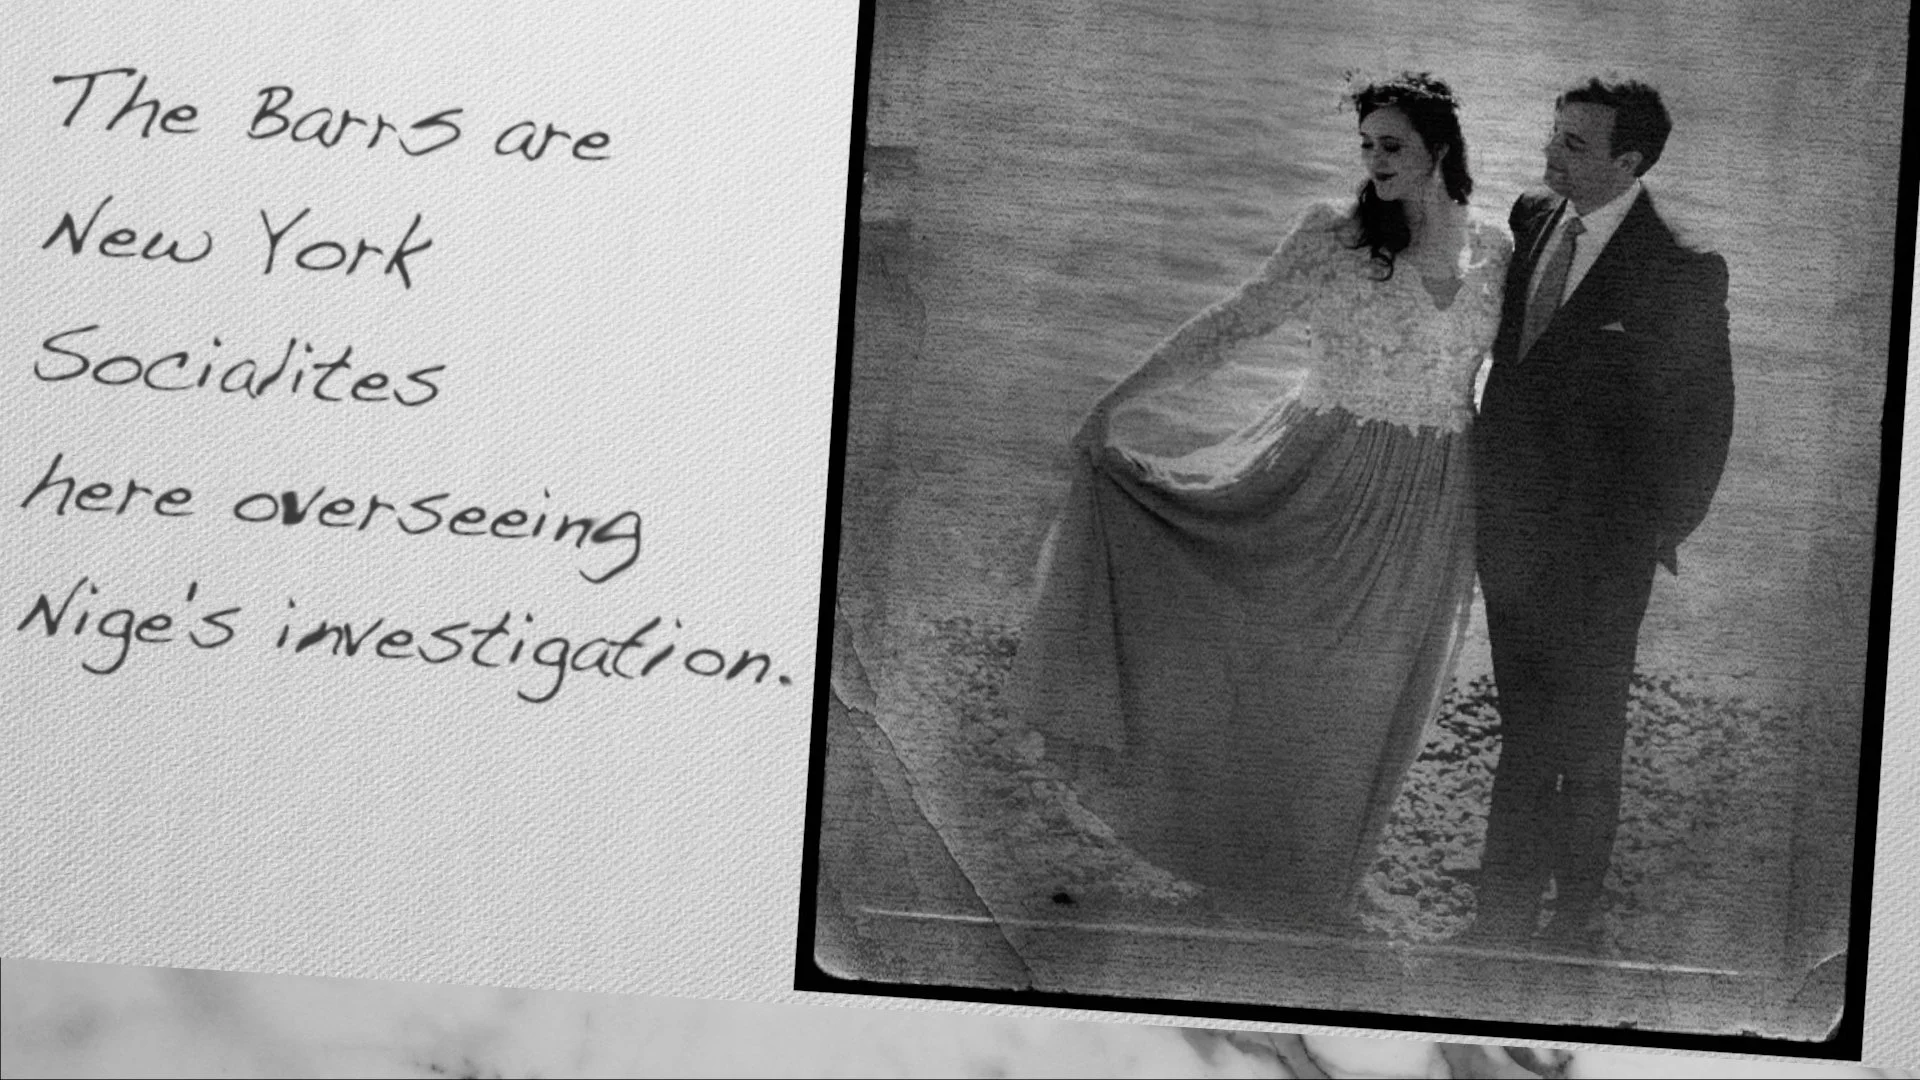 The Barrs are
New York
Socialites
here overseeing
Nige's investigation.